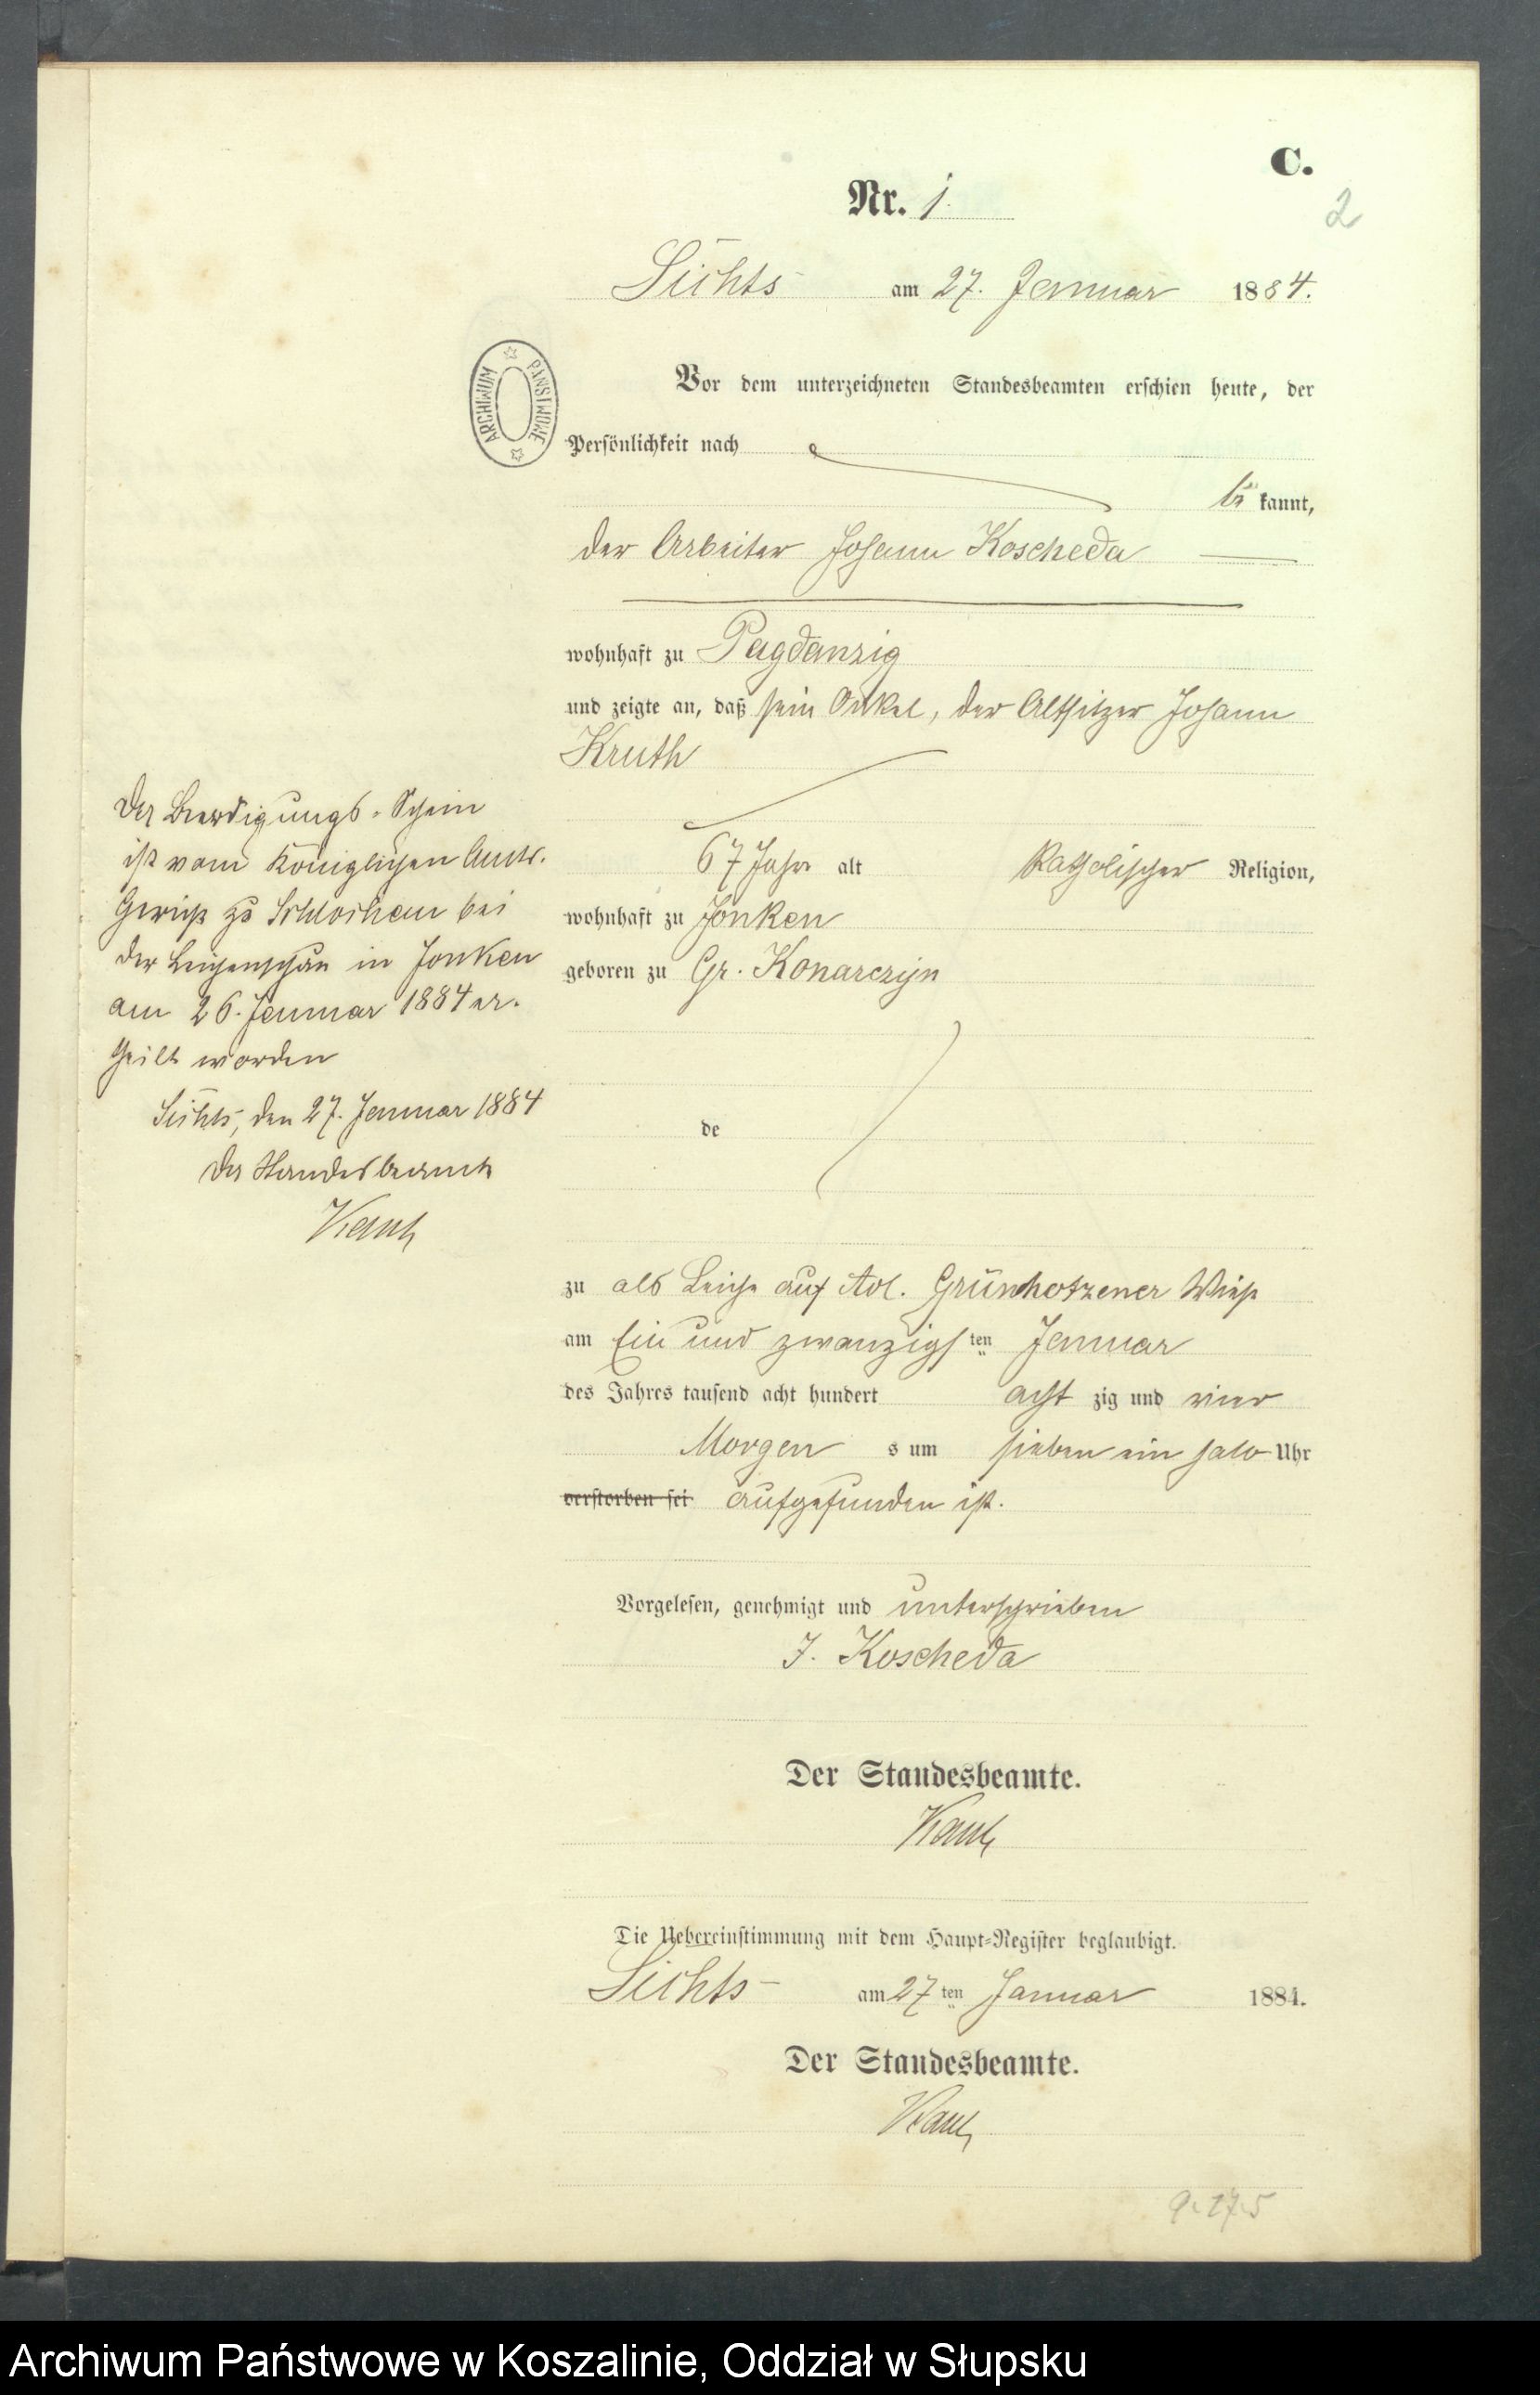 C.
Nr. 1.
2
Sichts am 27. Januar 1884.
Vor dem unterzeichneten Standesbeamten erschien heute, der
Persönlichkeit nach
be kannt,
der Arbeiter Johann Koscheda
wohnhaft zu Pagdanzig
und zeigte an, daß sein Onkel, der Altsitzer Johann
Kruth
67 Jahr alt Katholischer Religion,
wohnhaft zu Jonken
geboren zu Gr. Konarczyn
de
zu als Leiche auf Adl. Grünhotzener Wiese
am Ein und zwanzigs ten Januar
des Jahres tausend acht hundert acht zig und vier
Morgen s um sieben ein halb Uhr
verstorben sei aufgefunden ist.
Vorgelesen, genehmigt und unterschrieben
J. Koscheda
Der Standesbeamte.
Die Uebereinstimmung mit dem Haupt-Register beglaubigt.
Sichts am 27 ten Januar 1884.
Der Standesbeamte.
Der Beerdigungs-Schein
ist vom Königlichen Amts-
Gericht zu Schlochau bei
der Leichenschau in Jonken
am 26. Januar 1884 er-
theilt worden
Sichts, den 27. Januar 1884
Der Standesbeamte
ARCHIWUM PAŃSTWOWE
Archiwum Państwowe w Koszalinie, Oddział w Słupsku